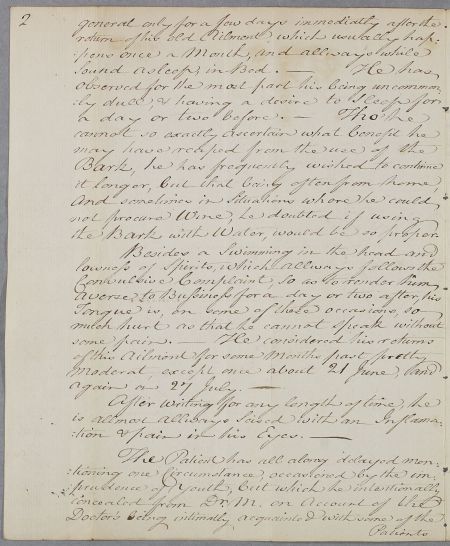 2
general only for a few days immediatly after the
return of his old Ailment which usually hap-
pens once a Month, and allways while
sound asleep, in Bed. — He has
observed for the most part his being uncommon-
ly dull, & having a desire to Sleep for
a day or two before. — Tho he
cannot so exactly ascertain what benefit he
may have reaped from the use of the
Bark, he has frequently wished to continue
it longer, but that being often from home,
And sometimes in Situations where he could
not procure Wine, he doubted if using
the Bark with Water, would be so proper
Besides a Swimming in the head and
lowness of Spirits, which allways follows the
Convulsive Complaint, so as to render him
averse to Bussiness for a day or two after, his
Tongue is, on some of these occasions, so
much hurt as that he cannot speak without
some pain. — He considered his returns
of this Ailment for some Months past, pretty
moderat, except once about 21 June, and
again on 27 July. —
After writing for any length of time, he
is allmost allways seised with an Inflama-
tion & pain in his Eyes. —
The Patient has all along delayed men-
tioning one circumstance, occasioned by the im-
prudence of youth, but which he intentionally
concealed from Dr. M. on Account of the
Doctor's being intimatly acquainted with some of the
Patients